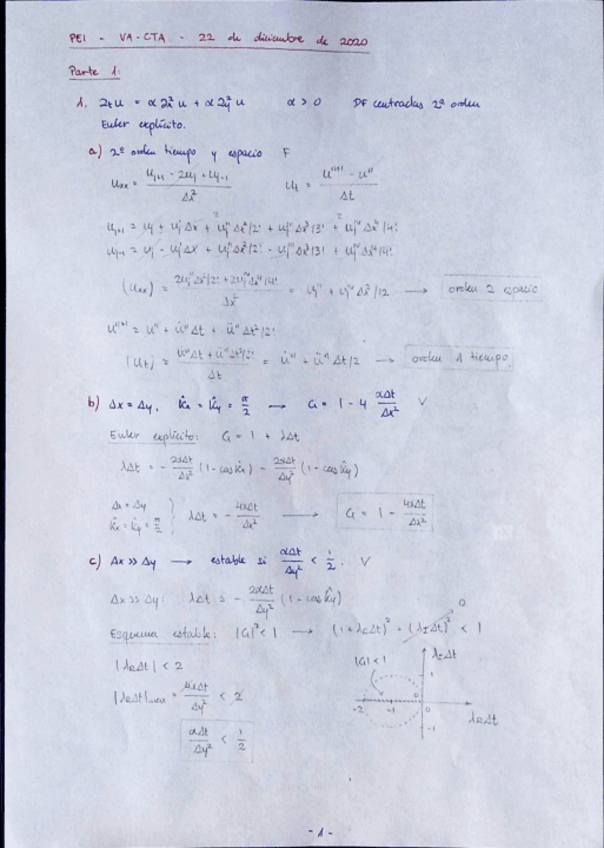 PEI - VA-CTA - 22 de diciembre de 2020
Parte 1:
1. ∂t u = α ∂x² u + α ∂y² u α > 0 DF centradas 2º orden
Euler explícito.
a) 2º orden tiempo y espacio F
uxx = (uj+1 - 2uj + uj-1) / Δx² ut = (uⁿ⁺¹ - uⁿ) / Δt
uj+1 = uj + uj' Δx + uj'' Δx²/2! + uj''' Δx³/3! + ujᴵⱽ Δx⁴/4!
uj-1 = uj - uj' Δx + uj'' Δx²/2! - uj''' Δx³/3! + ujᴵⱽ Δx⁴/4!
(uxx) = (2uj'' Δx²/2! + 2ujᴵⱽ Δx⁴/4!) / Δx² = uj'' + ujᴵⱽ Δx²/12 → orden 2 espacio
uⁿ⁺¹ = uⁿ + u̇ⁿ Δt + üⁿ Δt²/2!
(ut) = (u̇ⁿ Δt + üⁿ Δt²/2!) / Δt = u̇ⁿ + üⁿ Δt/2 → orden 1 tiempo
b) Δx = Δy, k̂x = k̂y = π/2 → G = 1 - 4 αΔt/Δx² V
Euler explícito: G = 1 + λΔt
λΔt = - 2αΔt/Δx² (1 - cos k̂x) - 2αΔt/Δy² (1 - cos k̂y)
Δx = Δy
k̂x = k̂y = π/2 } λΔt = - 4αΔt/Δx² → G = 1 - 4αΔt/Δx²
c) Δx >> Δy → estable si αΔt/Δy² < 1/2. V
Δx >> Δy: λΔt = - 2αΔt/Δy² (1 - cos k̂y)
Esquema estable: |G|² < 1 → (1 + λRΔt)² + (λIΔt)² < 1
0
|λRΔt| < 2
|λRΔt|max = 4αΔt/Δy² < 2
αΔt/Δy² < 1/2
|G| < 1
λIΔt
1
-2 -1 0
0
λRΔt
-1
- 1 -